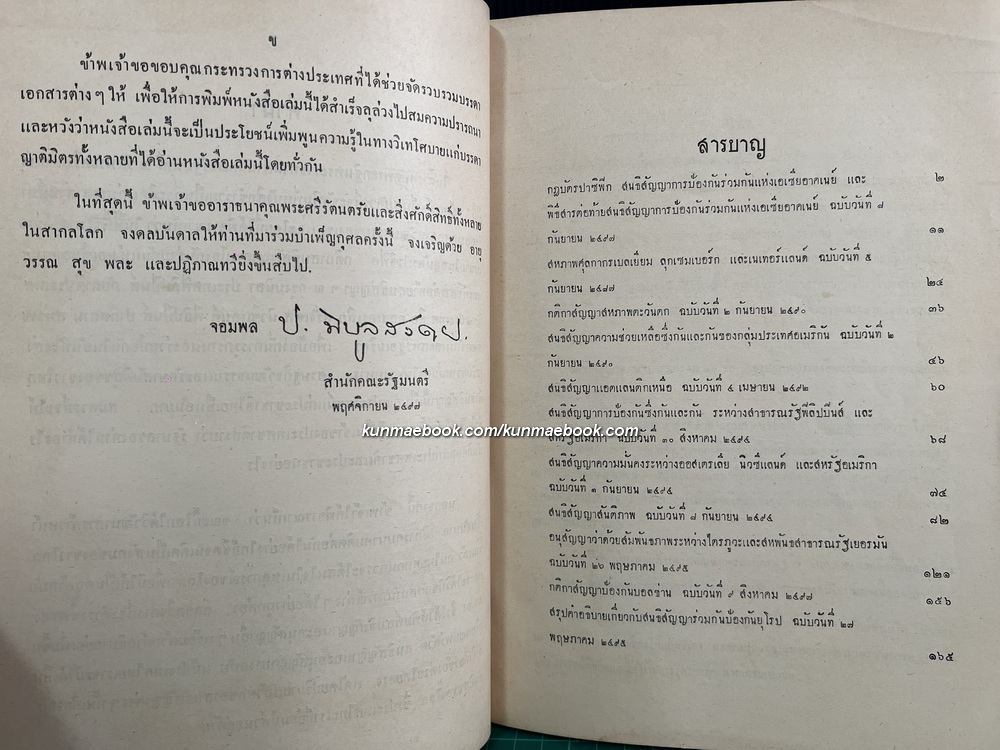 ข
ข้าพเจ้าขอขอบคุณกระทรวงการต่างประเทศที่ได้ช่วยจัดรวบรวมบรรดา
เอกสารต่าง ๆ ให้ เพื่อให้การพิมพ์หนังสือเล่มนี้ได้สำเร็จลุล่วงไปสมความปรารถนา
และหวังว่าหนังสือเล่มนี้จะเป็นประโยชน์เพิ่มพูนความรู้ในทางวิเทโศบายแก่บรรดา
ญาติมิตรทั้งหลายที่ได้อ่านหนังสือเล่มนี้โดยทั่วกัน
ในที่สุดนี้ ข้าพเจ้าขออาราธนาคุณพระศรีรัตนตรัยและสิ่งศักดิ์สิทธิ์ทั้งหลาย
ในสากลโลก จงดลบันดาลให้ท่านที่มาร่วมบำเพ็ญกุศลครั้งนี้ จงเจริญด้วย อายุ
วรรณ สุข พละ และปฏิภาณทวียิ่งขึ้นสืบไป.
จอมพล ป. พิบูลสงคราม.
สำนักคณะรัฐมนตรี
พฤศจิกายน ๒๔๙๗
kunmaebook.com/kunmaebook.com
สารบาญ
กฎบัตรปาซิฟิก สนธิสัญญาการป้องกันร่วมกันแห่งเอเซียอาคเนย์ และ ๒
พิธีสารต่อท้ายสนธิสัญญาการป้องกันร่วมกันแห่งเอเซียอาคเนย์ ฉบับวันที่ ๘
กันยายน ๒๔๙๗ ๑๑
สหภาพศุลกากรเบลเยียม ลุกเซมเบอร์ก และเนเทอร์แลนด์ ฉบับวันที่ ๕
กันยายน ๒๔๘๗ ๒๔
กติกาสัญญาสหภาพตะวันตก ฉบับวันที่ ๒ กันยายน ๒๔๙๐ ๓๖
สนธิสัญญาความช่วยเหลือซึ่งกันและกันของกลุ่มประเทศอเมริกัน ฉบับวันที่ ๒
กันยายน ๒๔๙๐ ๔๖
สนธิสัญญาแอตแลนติกเหนือ ฉบับวันที่ ๔ เมษายน ๒๔๙๒ ๖๐
สนธิสัญญาการป้องกันซึ่งกันและกัน ระหว่างสาธารณรัฐฟิลิปปินส์ และ
สหรัฐอเมริกา ฉบับวันที่ ๓๐ สิงหาคม ๒๔๙๔ ๖๘
สนธิสัญญาความมั่นคงระหว่างออสเตรเลีย นิวซีแลนด์ และสหรัฐอเมริกา
ฉบับวันที่ ๑ กันยายน ๒๔๙๔ ๗๔
สนธิสัญญาสันติภาพ ฉบับวันที่ ๘ กันยายน ๒๔๙๔ ๘๒
อนุสัญญาว่าด้วยสัมพันธภาพระหว่างไตรภูวะและสหพันธสาธารณรัฐเยอรมัน
ฉบับวันที่ ๒๖ พฤษภาคม ๒๔๙๕ ๑๒๑
กติกาสัญญาป้องกันบอลข่าน ฉบับวันที่ ๙ สิงหาคม ๒๔๙๗ ๑๕๖
สรุปคำอธิบายเกี่ยวกับสนธิสัญญาร่วมกันป้องกันยุโรป ฉบับวันที่ ๒๗
พฤษภาคม ๒๔๙๕ ๑๖๕